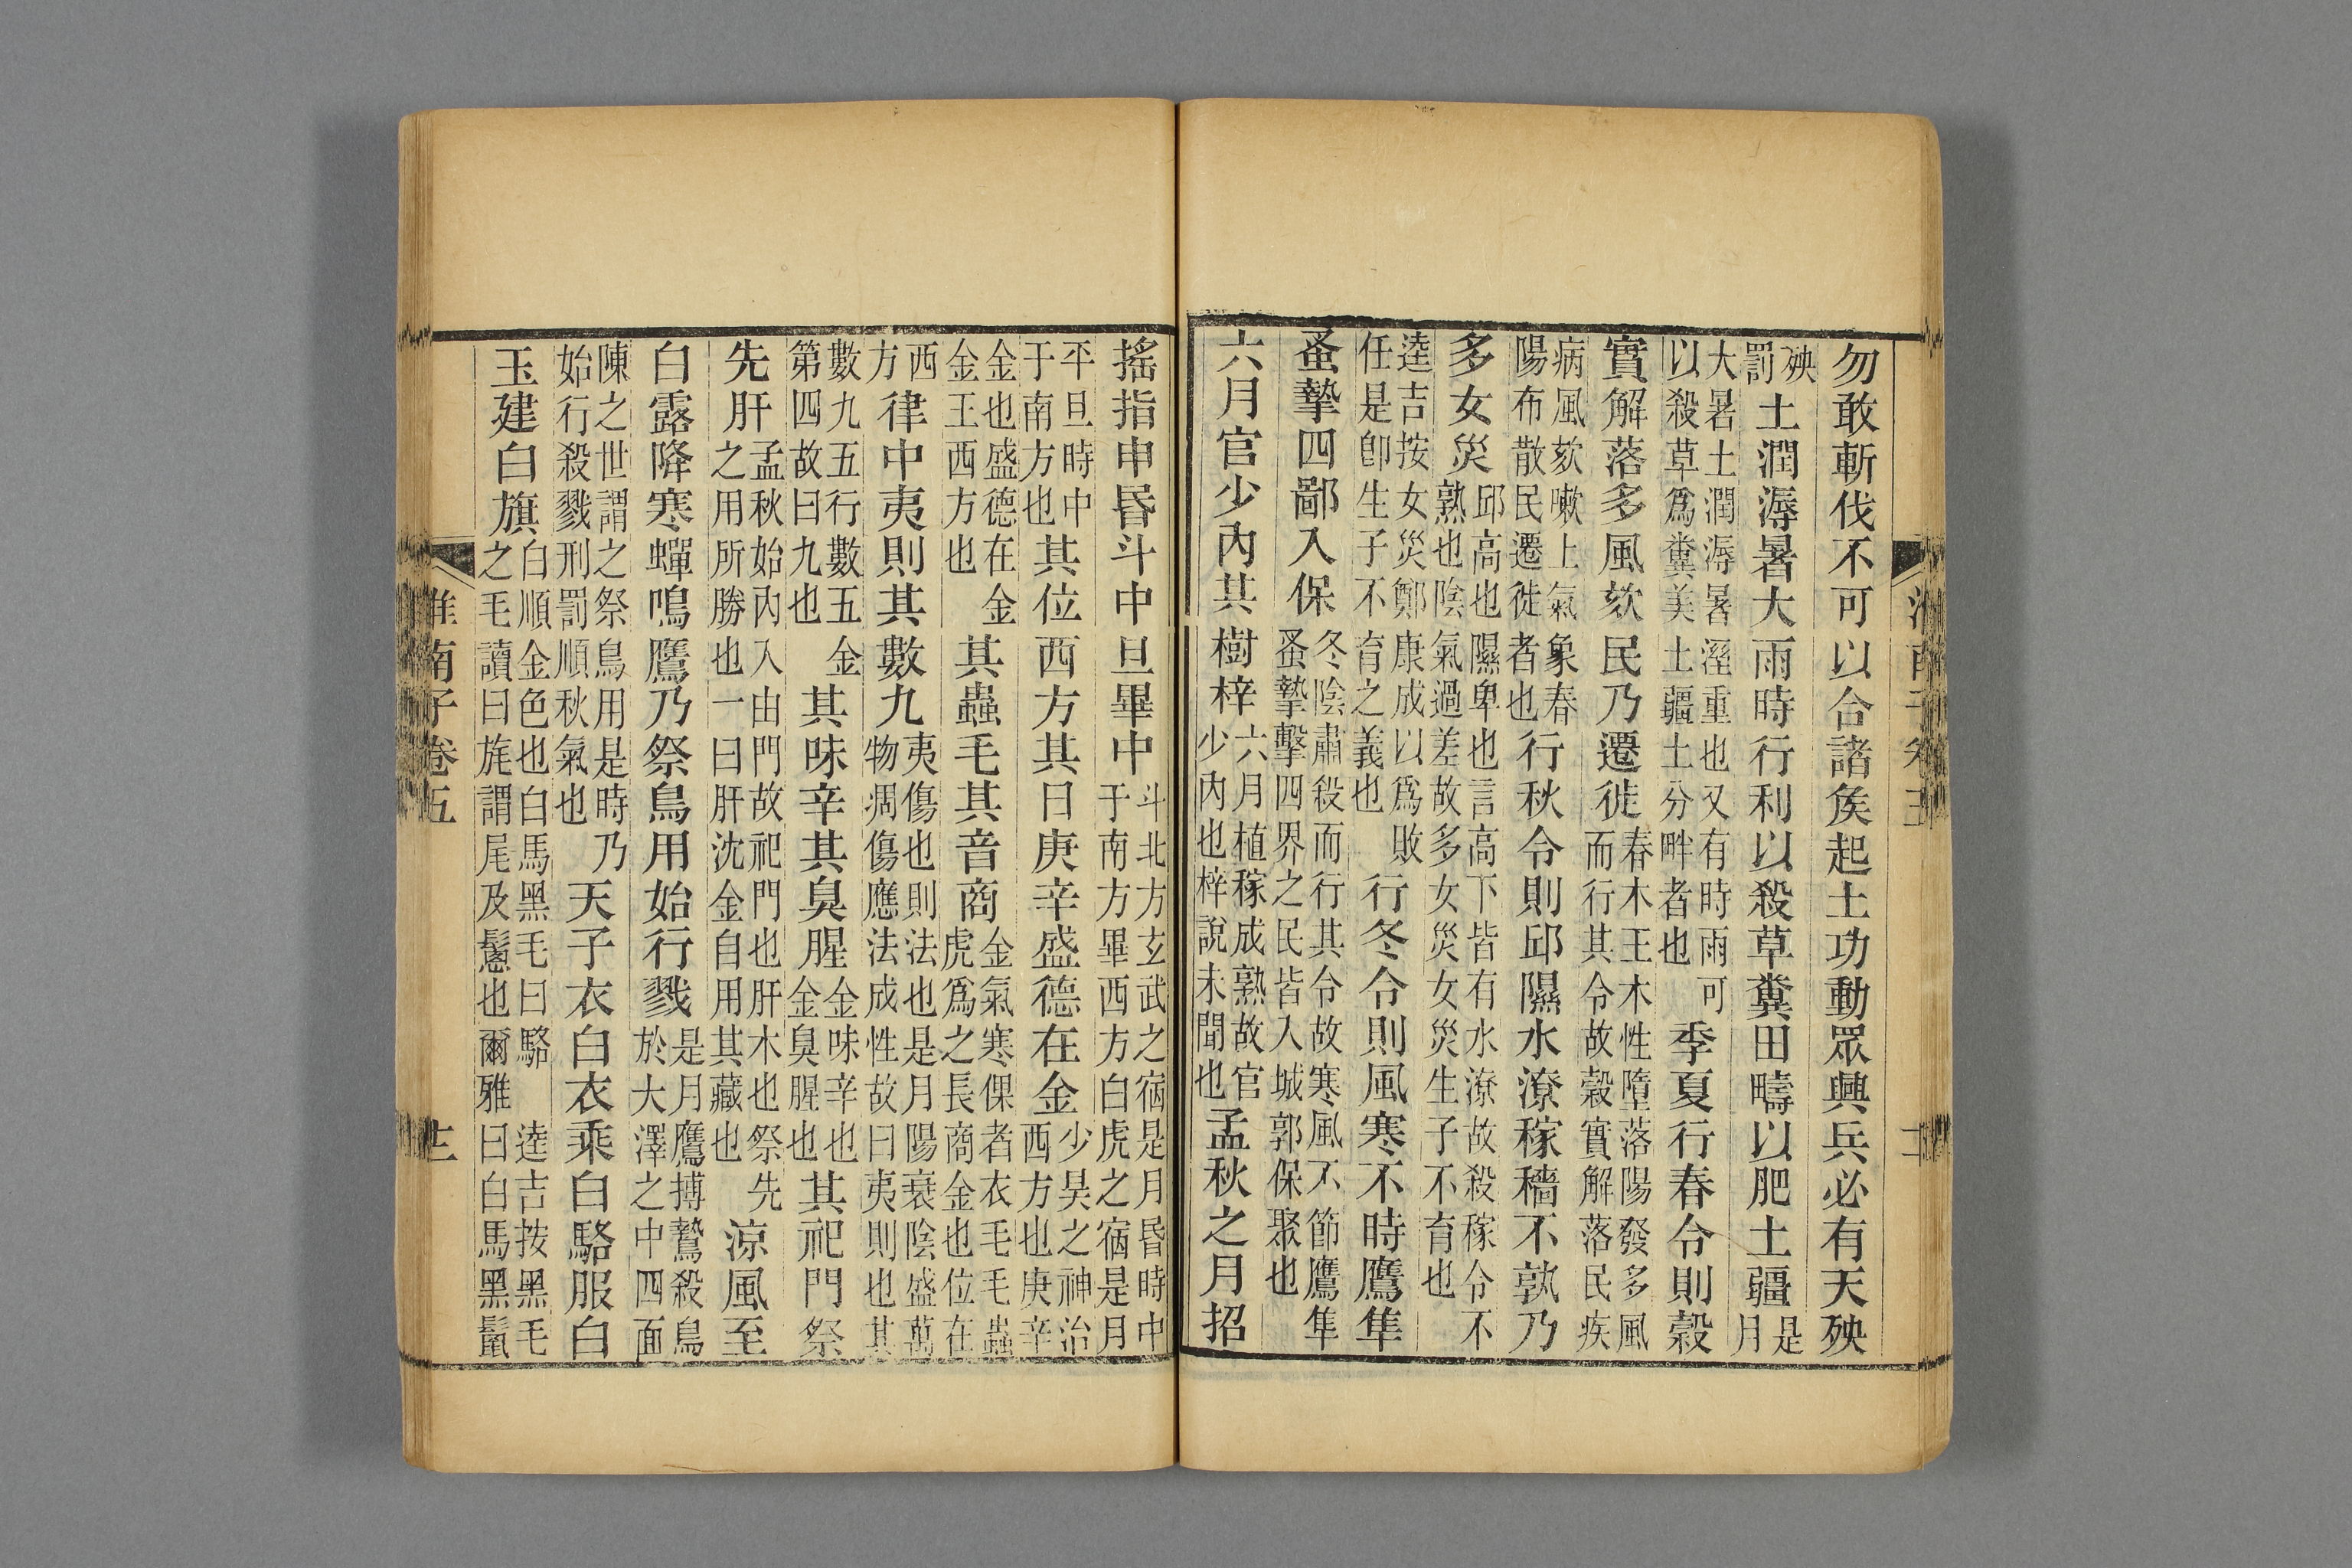 勿敢斬伐不可以合諸矦起土功動眾興兵必有天殃
殃罰土潤溽暑大雨時行利以殺草糞田疇以肥土疆是月
大暑土潤溽暑溼重也又有時雨可以殺草爲糞美土疆土分畔者也季夏行春令則穀
實解落多風欬民乃遷徙春木王木性墮落陽發多風而行其令故穀實解落民疾
病風欬嗽上氣象春陽布散民遷徙者也行秋令則邱隰水潦稼穡不孰乃
多女災邱高也隰卑也言高下皆有水潦故殺稼令不熟也陰氣過差故多女災女災生子不育也
逵吉按女災鄭康成以爲敗任是卽生子不育之義也行冬令則風寒不時鷹隼
蚤摯四鄙入保冬陰肅殺而行其令故寒風不節鷹隼蚤摯擊四界之民皆入城郭保聚也
六月官少內其樹梓六月植稼成熟故官少內也梓說未聞也孟秋之月招
搖指申昏斗中旦畢中斗北方玄武之宿是月昏時中于南方畢西方白虎之宿是月
平旦時中于南方也其位西方其日庚辛盛德在金少昊之神治西方也庚辛
金也盛德在金金王西方也其蟲毛其音商金氣寒倮者衣毛毛蟲虎爲之長商金也位在
西方律中夷則其數九夷傷也則法也是月陽衰陰盛萬物凋傷應法成性故曰夷則也其
數九五行數五金第四故曰九也其味辛其臭腥金味辛也金臭腥也其祀門祭
先肝孟秋始內入由門故祀門也肝木也祭先之用所勝也一曰肝沈金自用其藏也涼風至
白露降寒蟬鳴鷹乃祭鳥用始行戮是月鷹搏鷙殺鳥於大澤之中四面
陳之世謂之祭鳥用是時乃始行殺戮刑罰順秋氣也天子衣白衣乘白駱服白
玉建白旗白順金色也白馬黑毛曰駱逵吉按黑毛之毛讀曰旄謂尾及鬛也爾雅曰白馬黑鬛
淮南子卷五